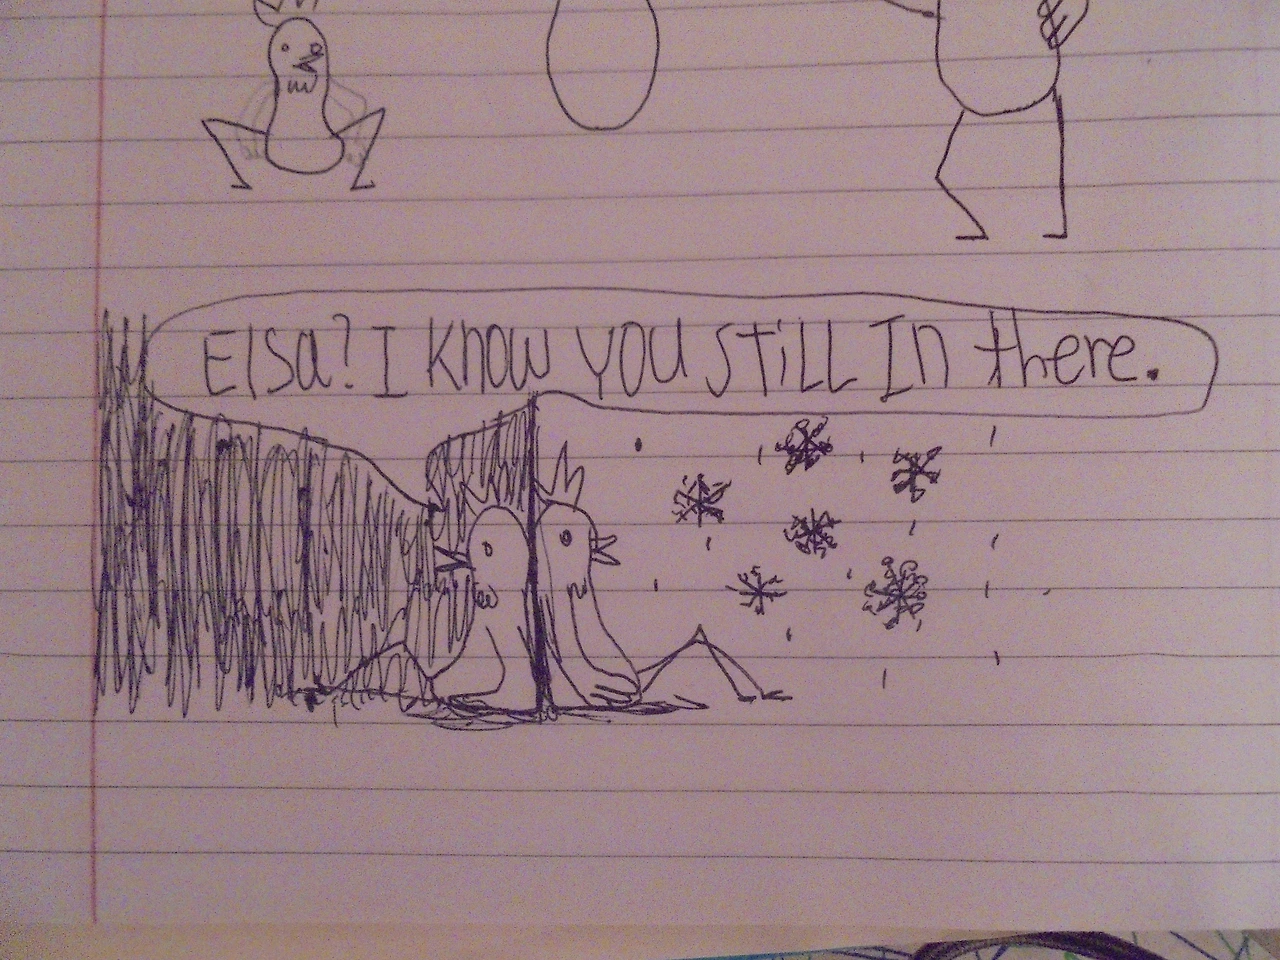 Elsa? I know you still In there.